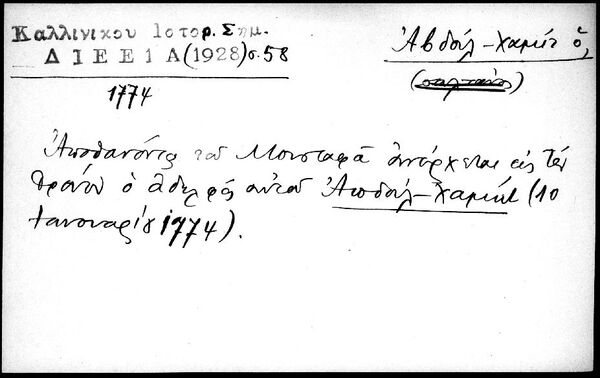 Καλλινικου Ιστορ. Σημ.
Δ Ι Ε Ε Ι Α (1928) σ. 58
Ἀβδοὺλ-Χαμίτ ὁ,
(σουλτάνος)
1774
Ἀποθανόντος τοῦ Μουσταφᾶ ἀνέρχεται εἰς τὸν
θρόνον ὁ ἀδελφός αὐτοῦ Ἀπδούλ-Χαμίτ (10
Ἰανουαρίου 1774).